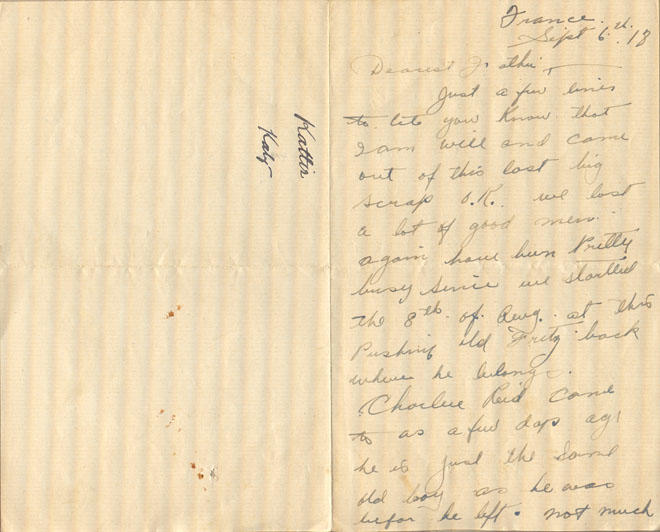 France.
Sept 6th. 18
Dearest
Just a few lines
to let you know that
I am well and came
out of this last big
scrap O.K. we lost
a lot of good men.
again, have been Pretty
busy since we started
the 8th. of Aug. at this
Pushing old Fritz back
where he belongs.
Charlie Reid came
to us a few days ago
he is just the same
old boy as he was
befor he left. not much
Katy